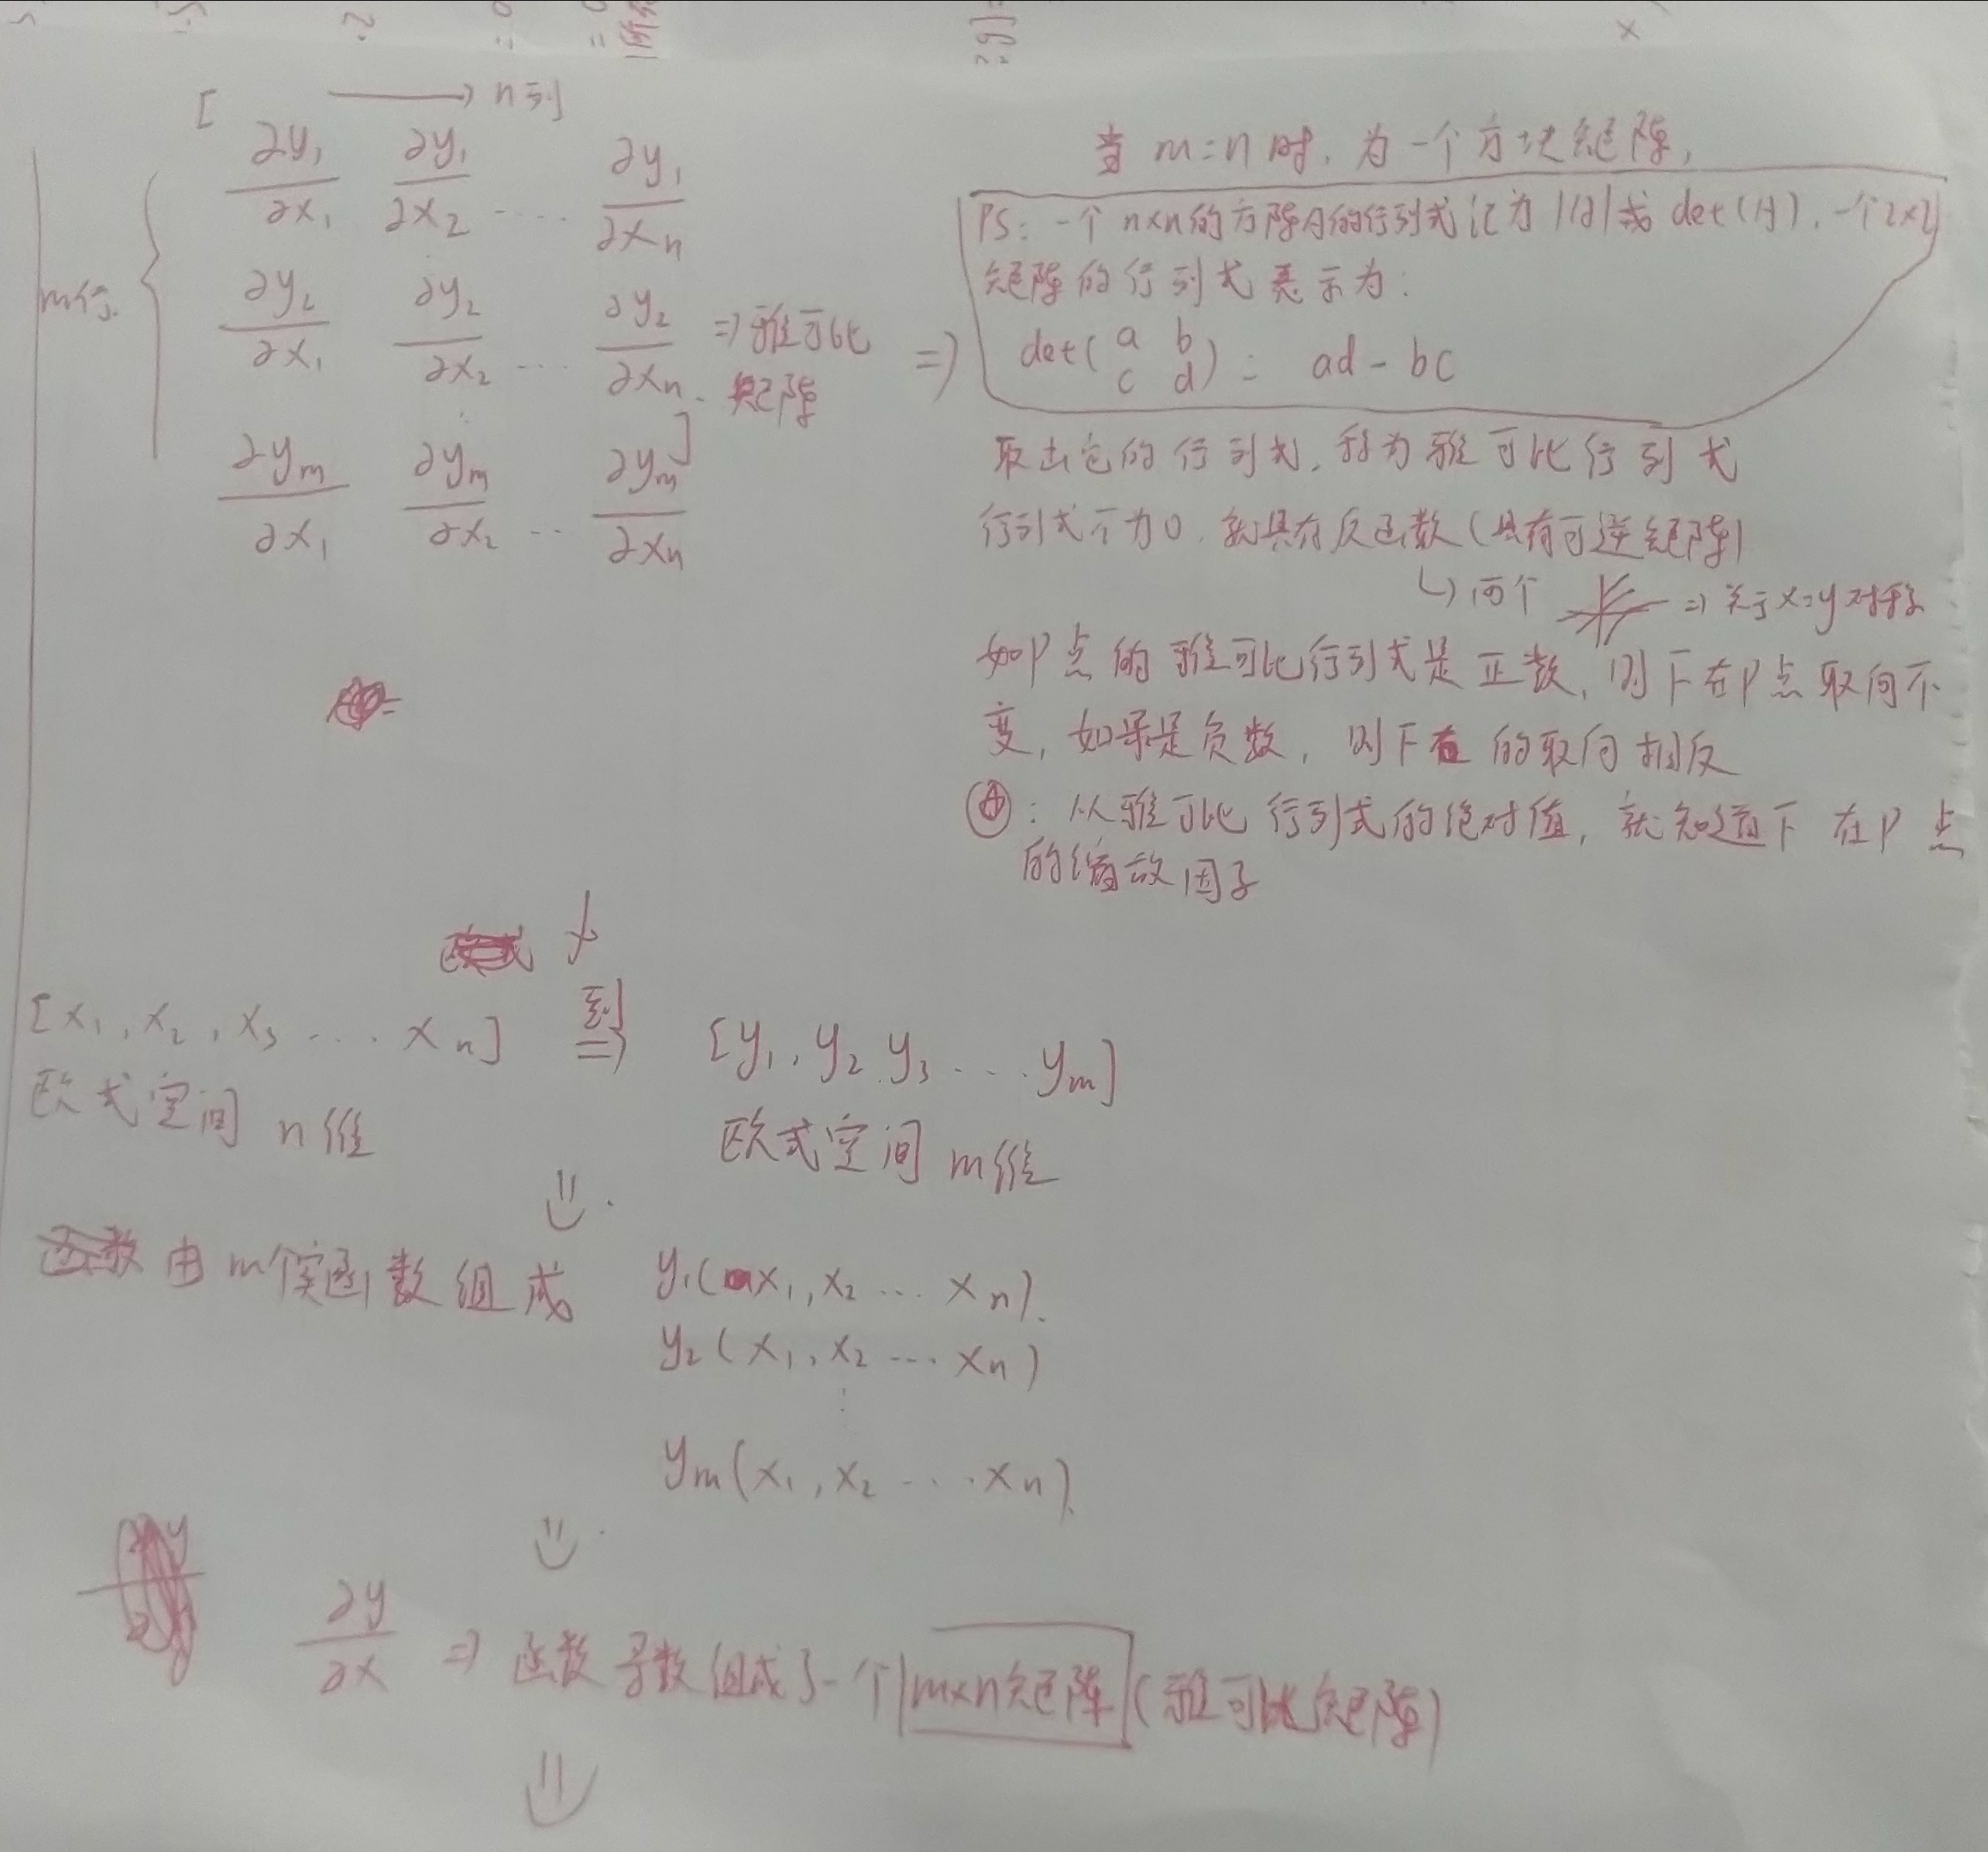 [ → n列]
m行 { ∂y₁/∂x₁ ∂y₁/∂x₂ .... ∂y₁/∂xn
∂y₂/∂x₁ ∂y₂/∂x₂ ... ∂y₂/∂xn ⇒ 雅可比
矩阵
∂ym/∂x₁ ∂ym/∂x₂ ... ∂ym/∂xn ]
⇒ 当 m=n 时，为一个方块矩阵，
PS: 一个 n×n的方阵A的行列式记为|A|或 det(A)，一个2×2
矩阵的行列式表示为：
det(a b
c d) = ad-bc
取出它的行列式，称为雅可比行列式
行列式不为0，就具有反函数(具有可逆矩阵)
↳ 两个 ⇒ 关于x=y对称
如P点的雅可比行列式是正数，则F在P点取向不
变，如果是负数，则F在的取向相反
A：从雅可比行列式的绝对值，就知道F在P点
的缩放因子
[x₁, x₂, x₃ .... xn] 到 ⇒ [y₁, y₂ y₃ .... ym]
欧式空间 n维 欧式空间 m维
⇓
函数由m个实函数组成 y₁(x₁, x₂ ... xn).
y₂(x₁, x₂ ... xn)
⋮
ym(x₁, x₂ .... xn).
⇓
∂y/∂x ⇒ 函数导数组成了一个m×n矩阵(雅可比矩阵)
⇓